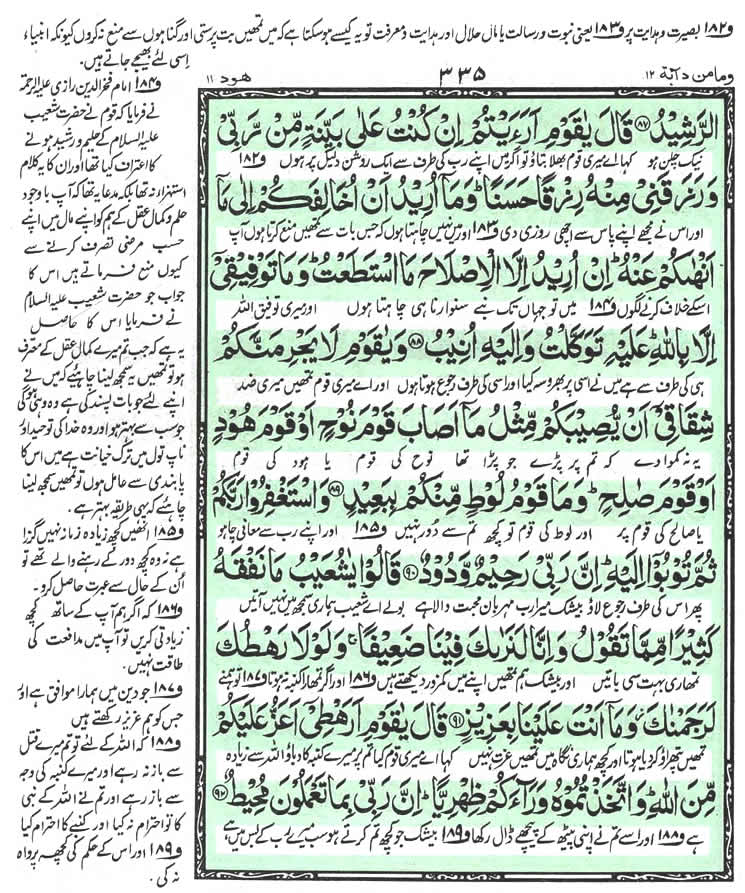 و۱۸۲ بصیرت و ہدایت پر و۱۸۳ یعنی نبوت و رسالت یا مال حلال اور ہدایت و معرفت تو یہ کیسے ہوسکتا ہے کہ میں تمھیں بت پرستی اور گناہوں سے منع نہ کروں کیونکہ انبیاء
اسی لئے بھیجے جاتے ہیں۔
ومامن دآبة ۱۲
۳۳۵
هود ۱۱
الرَّشِيْدُ ﴿۸۷﴾ قَالَ يٰقَوْمِ اَرَءَيْتُمْ اِنْ كُنْتُ عَلٰى بَيِّنَةٍ مِّنْ رَّبِّيْ
نیک چلن ہو کہا اے میری قوم بھلا بتاؤ تو اگر میں اپنے رب کی طرف سے ایک روشن دلیل پر ہوں و۱۸۲
وَرَزَقَنِيْ مِنْهُ رِزْقًا حَسَنًا ؕ وَمَاۤ اُرِيْدُ اَنْ اُخَالِفَكُمْ اِلٰى مَاۤ
اور اس نے مجھے اپنے پاس سے اچھی روزی دی و۱۸۳ اور میں نہیں چاہتا ہوں کہ جس بات سے تمھیں منع کرتا ہوں آپ
اَنْهٰىكُمْ عَنْهُ ؕ اِنْ اُرِيْدُ اِلَّا الْاِصْلَاحَ مَا اسْتَطَعْتُ ؕ وَمَا تَوْفِيْقِيْۤ
اسکے خلاف کرنے لگوں و۱۸۴ میں تو جہاں تک بنے سنوارنا ہی چاہتا ہوں اور میری توفیق اللہ
اِلَّا بِاللّٰهِ ؕ عَلَيْهِ تَوَكَّلْتُ وَاِلَيْهِ اُنِيْبُ ﴿۸۸﴾ وَيٰقَوْمِ لَا يَجْرِمَنَّكُمْ
ہی کی طرف سے ہے میں نے اسی پر بھروسہ کیا اور اسی کی طرف رجوع ہوتا ہوں اور اے میری قوم تمھیں میری ضد
شِقَاقِيْۤ اَنْ يُّصِيْبَكُمْ مِّثْلُ مَاۤ اَصَابَ قَوْمَ نُوْحٍ اَوْ قَوْمَ هُوْدٍ
یہ نہ کموا دے کہ تم پر پڑے جو پڑا تھا نوح کی قوم یا ہود کی قوم
اَوْ قَوْمَ صٰلِحٍ ؕ وَمَا قَوْمُ لُوْطٍ مِّنْكُمْ بِبَعِيْدٍ ﴿۸۹﴾ وَاسْتَغْفِرُوْا رَبَّكُمْ
یا صالح کی قوم پر اور لوط کی قوم تو کچھ تم سے دُور نہیں و۱۸۵ اور اپنے رب سے معافی چاہو
ثُمَّ تُوْبُوْۤا اِلَيْهِ ؕ اِنَّ رَبِّيْ رَحِيْمٌ وَّدُوْدٌ ﴿۹۰﴾ قَالُوْا يٰشُعَيْبُ مَا نَفْقَهُ
پھر اس کی طرف رجوع لاؤ بیشک میرا رب مہربان محبت والا ہے بولے اے شعیب ہماری سمجھ میں نہیں آتیں
كَثِيْرًا مِّمَّا تَقُوْلُ وَاِنَّا لَنَرٰىكَ فِيْنَا ضَعِيْفًا ۚ وَلَوْلَا رَهْطُكَ
تمھاری بہت سی باتیں اور بیشک ہم تمھیں اپنے میں کمزور دیکھتے ہیں و۱۸۶ اور اگر تمھارا کنبہ نہ ہوتا و۱۸۷ تو ہم نے
لَرَجَمْنٰكَ ؗ وَمَاۤ اَنْتَ عَلَيْنَا بِعَزِيْزٍ ﴿۹۱﴾ قَالَ يٰقَوْمِ اَرَهْطِيْۤ اَعَزُّ عَلَيْكُمْ
تمھیں پتھراؤ کردیا ہوتا اور کچھ ہماری نگاہ میں تمھیں عزت نہیں کہا اے میری قوم کیا تم پر میرے کنبہ کا دباؤ اللہ سے زیادہ
مِّنَ اللّٰهِ ؕ وَاتَّخَذْتُمُوْهُ وَرَآءَكُمْ ظِهْرِيًّا ؕ اِنَّ رَبِّيْ بِمَا تَعْمَلُوْنَ مُحِيْطٌ ﴿۹۲﴾
ہے و۱۸۸ اور اسے تم نے اپنی پیٹھ کے پیچھے ڈال رکھا و۱۸۹ بیشک جو کچھ تم کرتے ہو سب میرے رب کے بس میں ہے
و۱۸۴ امام فخر الدین رازی علیہ الرحمۃ
نے فرمایا کہ قوم نے حضرت شعیب
علیہ السلام کے حلیم و رشید ہونے
کا اعتراف کیا تھا اور ان کا یہ کلام
استہزاء نہ تھا بلکہ مدعا یہ تھا کہ آپ باوجود
حلم و کمال عقل کے ہم کو اپنے مال میں اپنے
حسب مرضی تصرف کرنے سے
کیوں منع فرماتے ہیں اس کا
جواب جو حضرت شعیب علیہ السلام
نے فرمایا اس کا حاصل
یہ ہے کہ جب تم میرے کمال عقل کے معترف
ہو تو تمھیں یہ سمجھ لینا چاہئے کہ میں نے
اپنے لئے جو بات پسند کی ہے وہ وہی ہوگی
جو سب سے بہتر ہو اور وہ خدا کی توحید اور
ناپ تول میں ترک خیانت ہے میں اس کا
پابندی سے عامل ہوں تو تمھیں سمجھ لینا
چاہئے کہ یہی طریقہ بہتر ہے۔
و۱۸۵ انھیں کچھ زیادہ زمانہ نہیں گزرا
ہے نہ وہ کچھ دور کے رہنے والے تھے تو
اُن کے حال سے عبرت حاصل کرو۔
و۱۸۶ کہ اگر ہم آپ کے ساتھ کچھ
زیادتی کریں تو آپ میں مدافعت کی
طاقت نہیں۔
و۱۸۷ جو دین میں ہمارا موافق ہے اور
جس کو ہم عزیز رکھتے ہیں
و۱۸۸ کہ اللہ کے لئے تو تم میرے قتل
سے باز نہ رہے اور میرے کنبہ کی وجہ
سے باز رہے اور تم نے اللہ کے نبی
کا تو احترام نہ کیا اور کنبے کا احترام کیا
و۱۸۹ اور اس کے حکم کی کچھ پرواہ
نہ کی۔